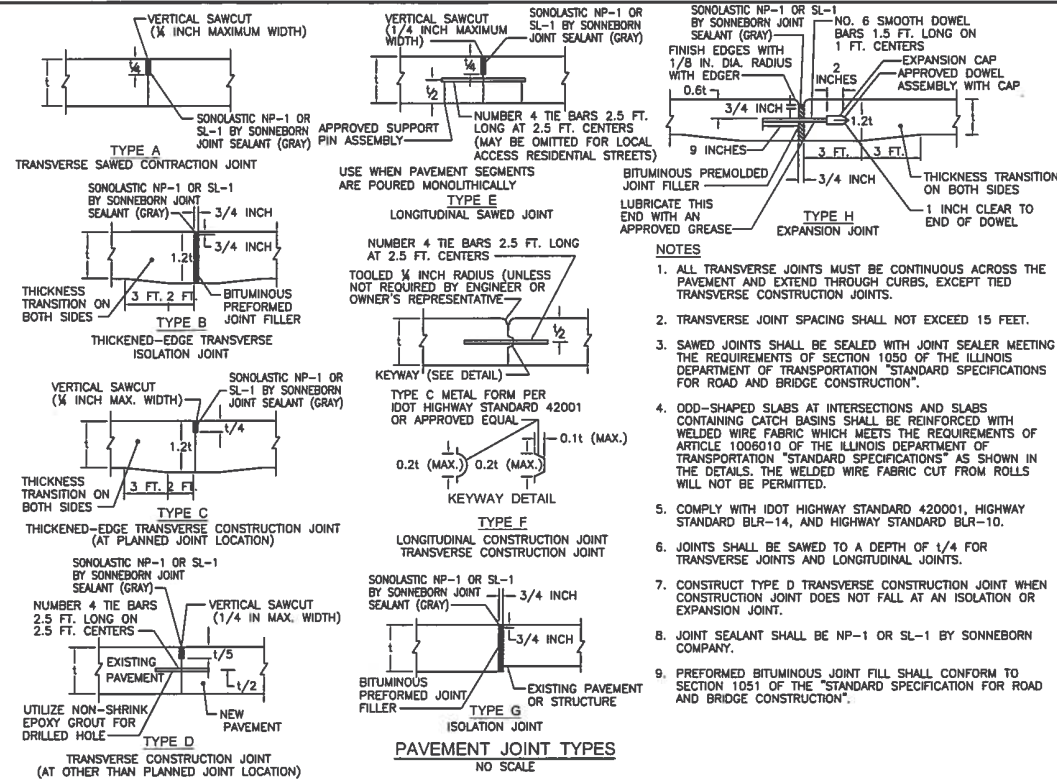 VERTICAL SAWCUT
(¼ INCH MAXIMUM WIDTH)
t
t/4
SONOLASTIC NP-1 OR
SL-1 BY SONNEBORN
JOINT SEALANT (GRAY)
TYPE A
TRANSVERSE SAWED CONTRACTION JOINT
SONOLASTIC NP-1 OR SL-1
BY SONNEBORN JOINT
SEALANT (GRAY)
3/4 INCH
3/4 INCH
t
1.2t
THICKNESS
TRANSITION ON
BOTH SIDES
3 FT.
2 FT.
BITUMINOUS
PREFORMED
JOINT FILLER
TYPE B
THICKENED-EDGE TRANSVERSE
ISOLATION JOINT
VERTICAL SAWCUT
(¼ INCH MAX. WIDTH)
SONOLASTIC NP-1 OR
SL-1 BY SONNEBORN
JOINT SEALANT (GRAY)
t/4
t
1.2t
THICKNESS
TRANSITION ON
BOTH SIDES
3 FT.
2 FT.
TYPE C
THICKENED-EDGE TRANSVERSE CONSTRUCTION JOINT
(AT PLANNED JOINT LOCATION)
SONOLASTIC NP-1 OR SL-1
BY SONNEBORN JOINT
SEALANT (GRAY)
NUMBER 4 TIE BARS
2.5 FT. LONG ON
2.5 FT. CENTERS
VERTICAL SAWCUT
(1/4 IN MAX. WIDTH)
t
t/5
EXISTING
PAVEMENT
t/2
UTILIZE NON-SHRINK
EPOXY GROUT FOR
DRILLED HOLE
NEW
PAVEMENT
TYPE D
TRANSVERSE CONSTRUCTION JOINT
(AT OTHER THAN PLANNED JOINT LOCATION)
VERTICAL SAWCUT
(1/4 INCH MAXIMUM
WIDTH)
SONOLASTIC NP-1 OR
SL-1 BY SONNEBORN
JOINT SEALANT (GRAY)
t
t/4
t/2
APPROVED SUPPORT
PIN ASSEMBLY
NUMBER 4 TIE BARS 2.5 FT.
LONG AT 2.5 FT. CENTERS
(MAY BE OMITTED FOR LOCAL
ACCESS RESIDENTIAL STREETS)
USE WHEN PAVEMENT SEGMENTS
ARE POURED MONOLITHICALLY
TYPE E
LONGITUDINAL SAWED JOINT
NUMBER 4 TIE BARS 2.5 FT. LONG
AT 2.5 FT. CENTERS
TOOLED ¼ INCH RADIUS (UNLESS
NOT REQUIRED BY ENGINEER OR
OWNER'S REPRESENTATIVE)
t
t/2
KEYWAY (SEE DETAIL)
TYPE C METAL FORM PER
IDOT HIGHWAY STANDARD 42001
OR APPROVED EQUAL
0.1t (MAX.)
0.2t (MAX.)
0.2t (MAX.)
KEYWAY DETAIL
TYPE F
LONGITUDINAL CONSTRUCTION JOINT
TRANSVERSE CONSTRUCTION JOINT
SONOLASTIC NP-1 OR SL-1
BY SONNEBORN JOINT
SEALANT (GRAY)
3/4 INCH
3/4 INCH
t
BITUMINOUS
PREFORMED JOINT
FILLER
EXISTING PAVEMENT
OR STRUCTURE
TYPE G
ISOLATION JOINT
PAVEMENT JOINT TYPES
NO SCALE
SONOLASTIC NP-1 OR SL-1
BY SONNEBORN JOINT
SEALANT (GRAY)
NO. 6 SMOOTH DOWEL
BARS 1.5 FT. LONG ON
1 FT. CENTERS
FINISH EDGES WITH
1/8 IN. DIA. RADIUS
WITH EDGER
2
INCHES
EXPANSION CAP
APPROVED DOWEL
ASSEMBLY WITH CAP
0.6t
3/4 INCH
1.2t
t
9 INCHES
3 FT.
3 FT.
BITUMINOUS PREMOLDED
JOINT FILLER
3/4 INCH
THICKNESS TRANSITION
ON BOTH SIDES
LUBRICATE THIS
END WITH AN
APPROVED GREASE
1 INCH CLEAR TO
END OF DOWEL
TYPE H
EXPANSION JOINT
NOTES
1. ALL TRANSVERSE JOINTS MUST BE CONTINUOUS ACROSS THE
PAVEMENT AND EXTEND THROUGH CURBS, EXCEPT TIED
TRANSVERSE CONSTRUCTION JOINTS.
2. TRANSVERSE JOINT SPACING SHALL NOT EXCEED 15 FEET.
3. SAWED JOINTS SHALL BE SEALED WITH JOINT SEALER MEETING
THE REQUIREMENTS OF SECTION 1050 OF THE ILLINOIS
DEPARTMENT OF TRANSPORTATION "STANDARD SPECIFICATIONS
FOR ROAD AND BRIDGE CONSTRUCTION".
4. ODD-SHAPED SLABS AT INTERSECTIONS AND SLABS
CONTAINING CATCH BASINS SHALL BE REINFORCED WITH
WELDED WIRE FABRIC WHICH MEETS THE REQUIREMENTS OF
ARTICLE 1006010 OF THE ILLINOIS DEPARTMENT OF
TRANSPORTATION "STANDARD SPECIFICATIONS" AS SHOWN IN
THE DETAILS. THE WELDED WIRE FABRIC CUT FROM ROLLS
WILL NOT BE PERMITTED.
5. COMPLY WITH IDOT HIGHWAY STANDARD 420001, HIGHWAY
STANDARD BLR-14, AND HIGHWAY STANDARD BLR-10.
6. JOINTS SHALL BE SAWED TO A DEPTH OF t/4 FOR
TRANSVERSE JOINTS AND LONGITUDINAL JOINTS.
7. CONSTRUCT TYPE D TRANSVERSE CONSTRUCTION JOINT WHEN
CONSTRUCTION JOINT DOES NOT FALL AT AN ISOLATION OR
EXPANSION JOINT.
8. JOINT SEALANT SHALL BE NP-1 OR SL-1 BY SONNEBORN
COMPANY.
9. PREFORMED BITUMINOUS JOINT FILL SHALL CONFORM TO
SECTION 1051 OF THE "STANDARD SPECIFICATION FOR ROAD
AND BRIDGE CONSTRUCTION".